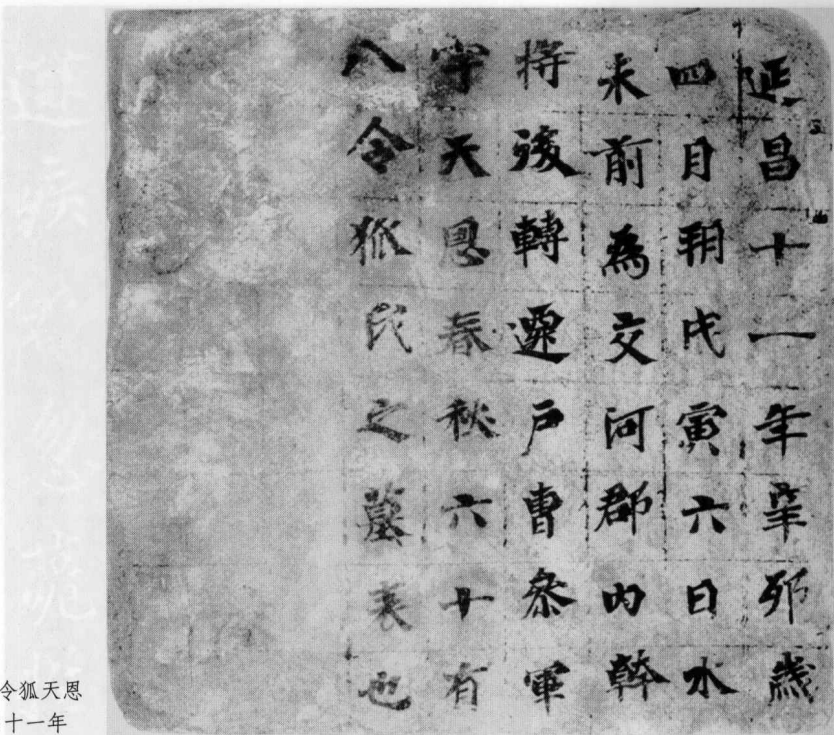 延昌十一年辛卯歲
四月朔戊寅六日水
未前為交河郡内幹
將後轉遷戸曹參軍
字天恩春秋六十有
八令狐氏之墓表也
令狐天恩
十一年